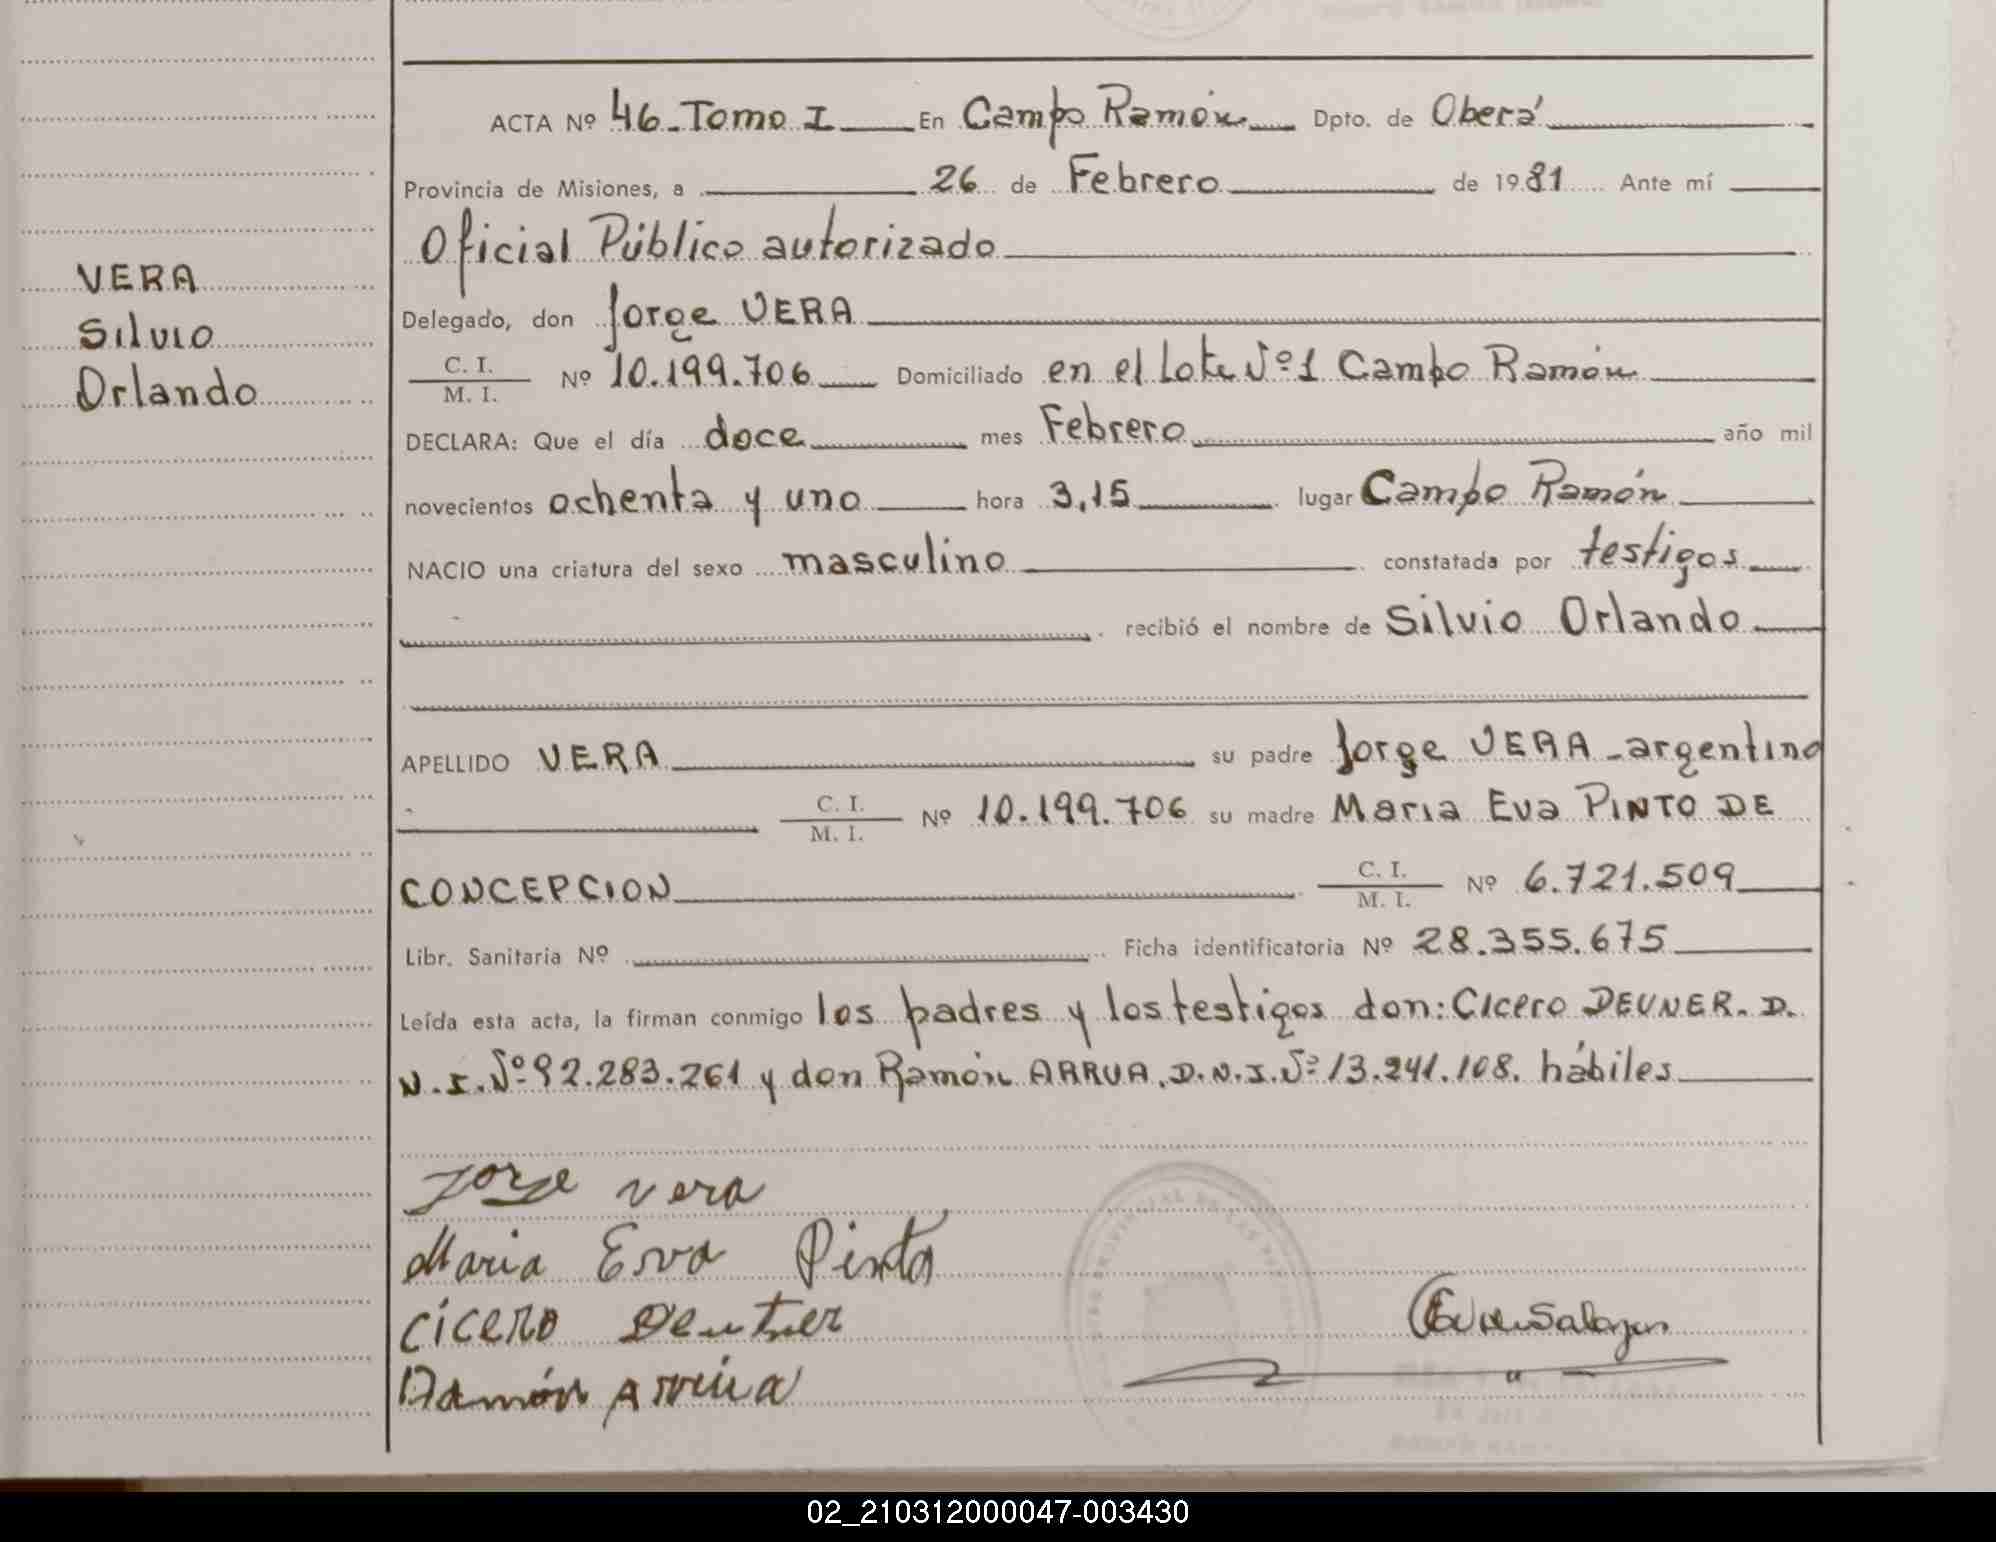 ACTA Nº 46 - Tomo I En Campo Ramón Dpto. de Oberá
Provincia de Misiones, a 26 de Febrero de 1981 Ante mí
Oficial Público autorizado
VERA
Silvio
Orlando
Delegado, don Jorge VERA
C. I.
M. I. Nº 10.199.706 Domiciliado en el Lote Nº 1 Campo Ramón
DECLARA: Que el día doce mes Febrero año mil
novecientos ochenta y uno hora 3,15 lugar Campo Ramón
NACIO una criatura del sexo masculino constatada por testigos
recibió el nombre de Silvio Orlando
APELLIDO VERA su padre Jorge VERA - argentino
C. I.
M. I. Nº 10.199.706 su madre Maria Eva PINTO DE
CONCEPCION C. I.
M. I. Nº 6.721.509
Libr. Sanitaria Nº Ficha identificatoria Nº 28.355.675
Leída esta acta, la firman conmigo los padres y los testigos don: Cicero DEUNER. D.
N.I. Nº 92.283.261 y don Ramón ARRUA. D.N.I. Nº 13.241.108. hábiles
Jorge vera
Maria Eva Pinto
Cicero
Ramón Arrúa
02_210312000047-003430